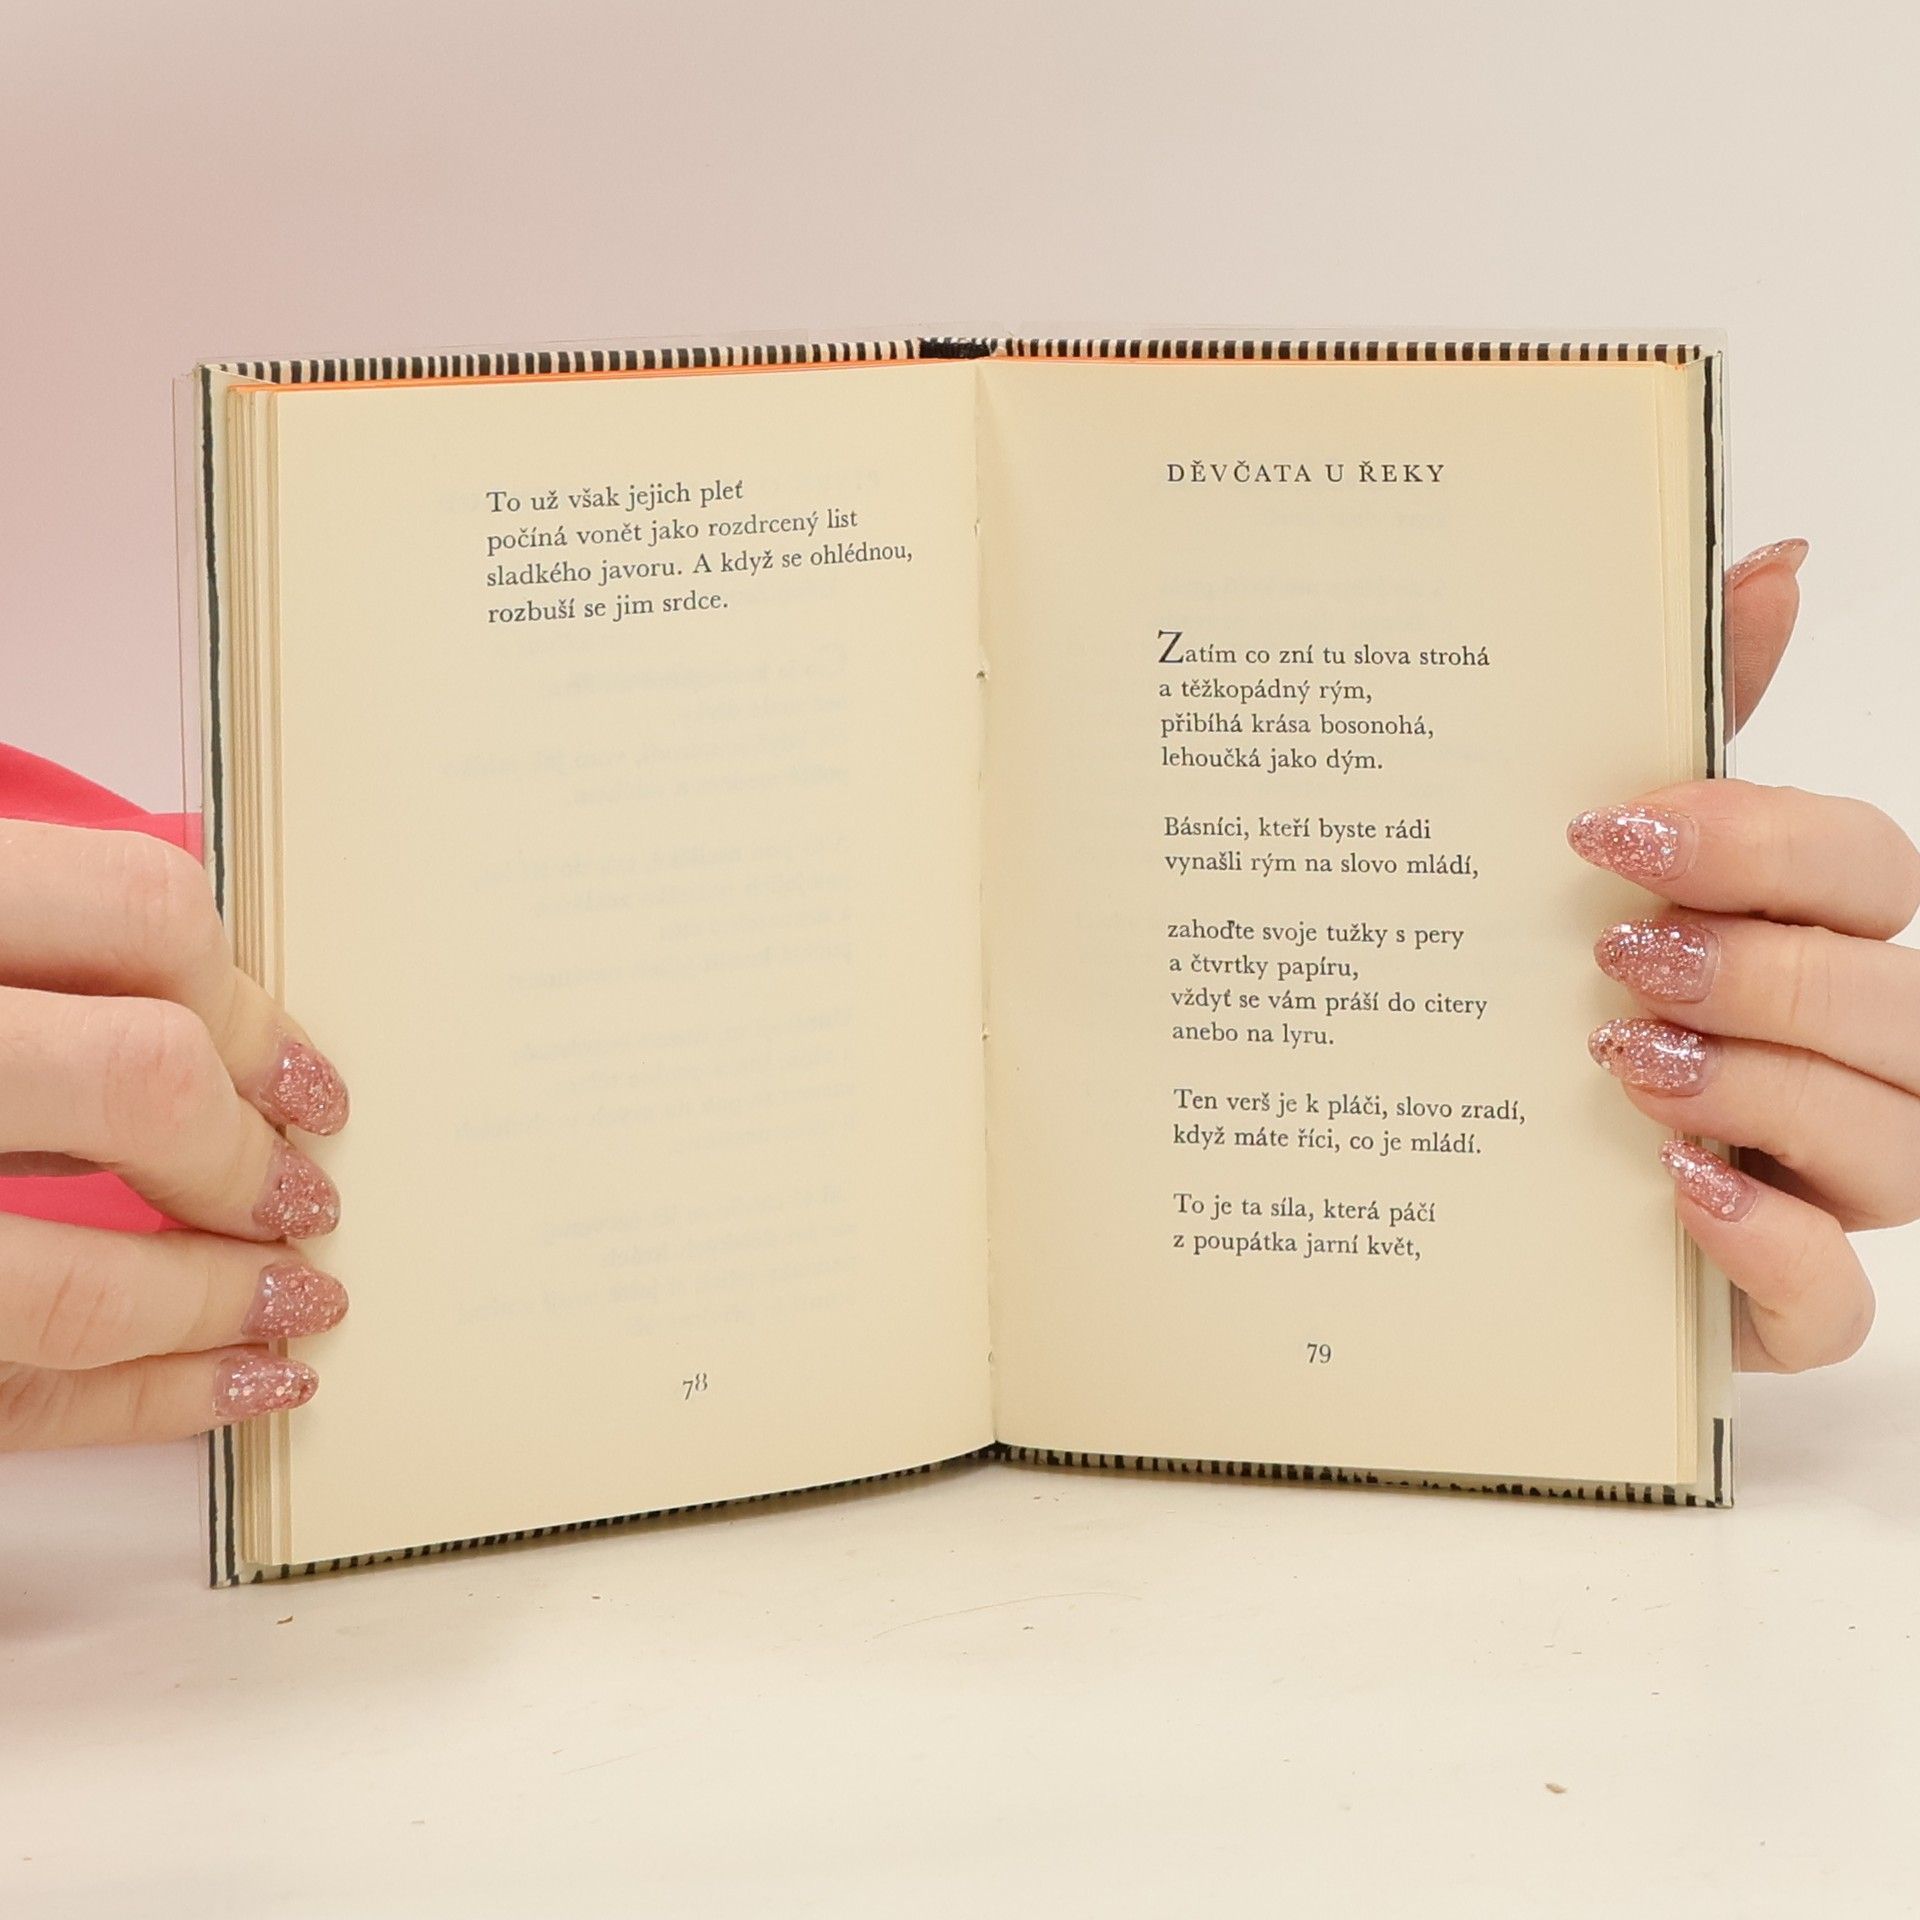 To už však jejich pleť
počíná vonět jako rozdrcený list
sladkého javoru. A když se ohlédnou,
rozbuší se jim srdce.
78
DĚVČATA U ŘEKY
Zatím co zní tu slova strohá
a těžkopádný rým,
přibíhá krása bosonohá,
lehoučká jako dým.
Básníci, kteří byste rádi
vynašli rým na slovo mládí,
zahoďte svoje tužky s pery
a čtvrtky papíru,
vždyť se vám práší do citery
anebo na lyru.
Ten verš je k pláči, slovo zradí,
když máte říci, co je mládí.
To je ta síla, která páčí
z poupátka jarní květ,
79